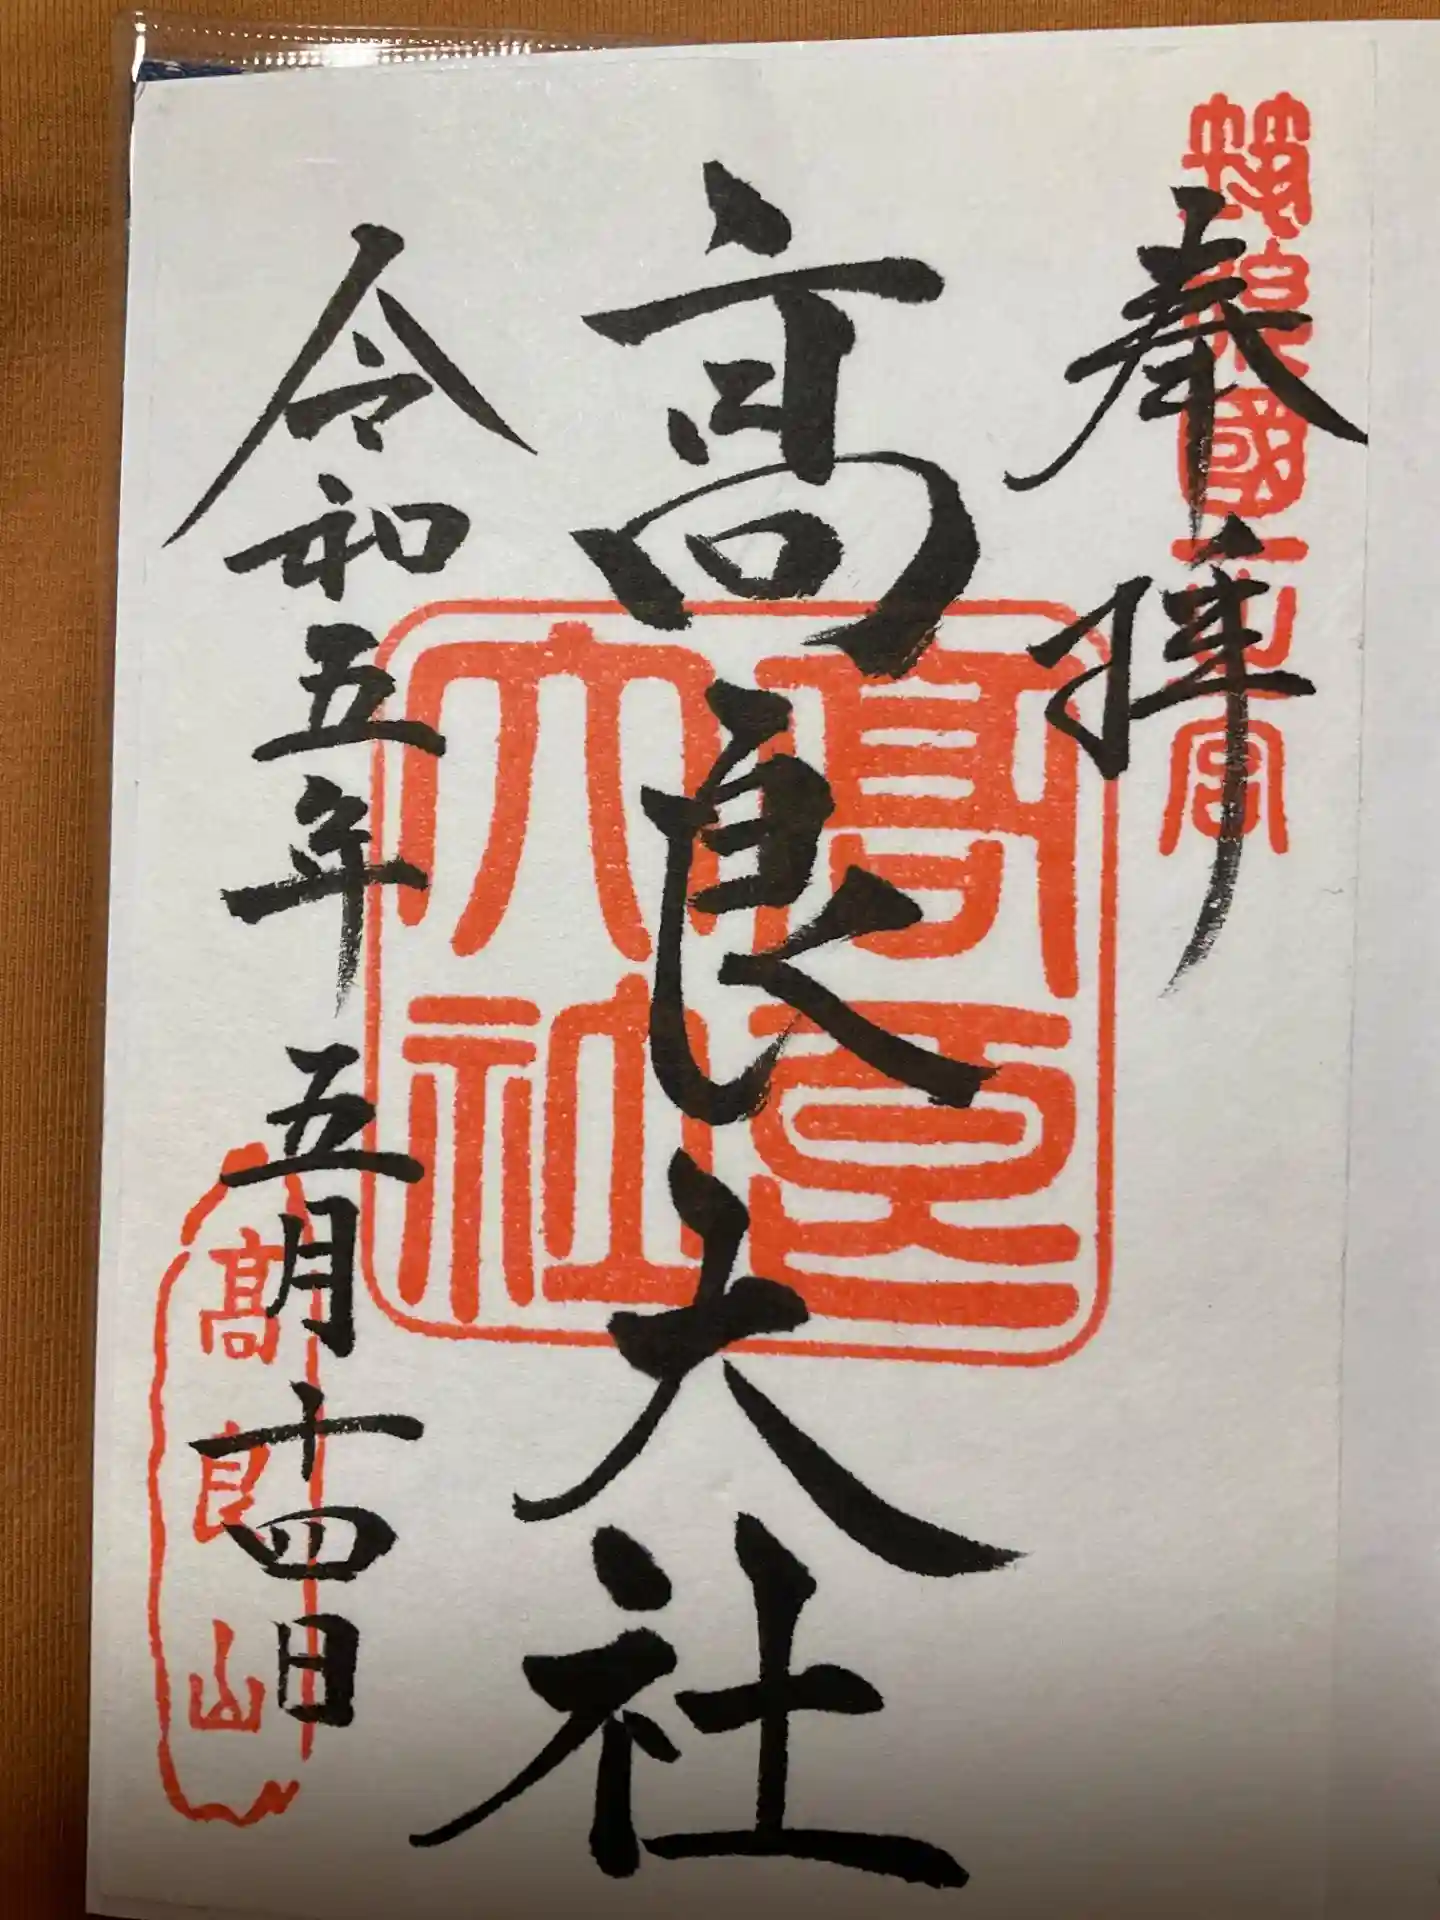 奉拝
筑後國一之宮
高良大社
高良大社
令和五年五月十四日
高良山